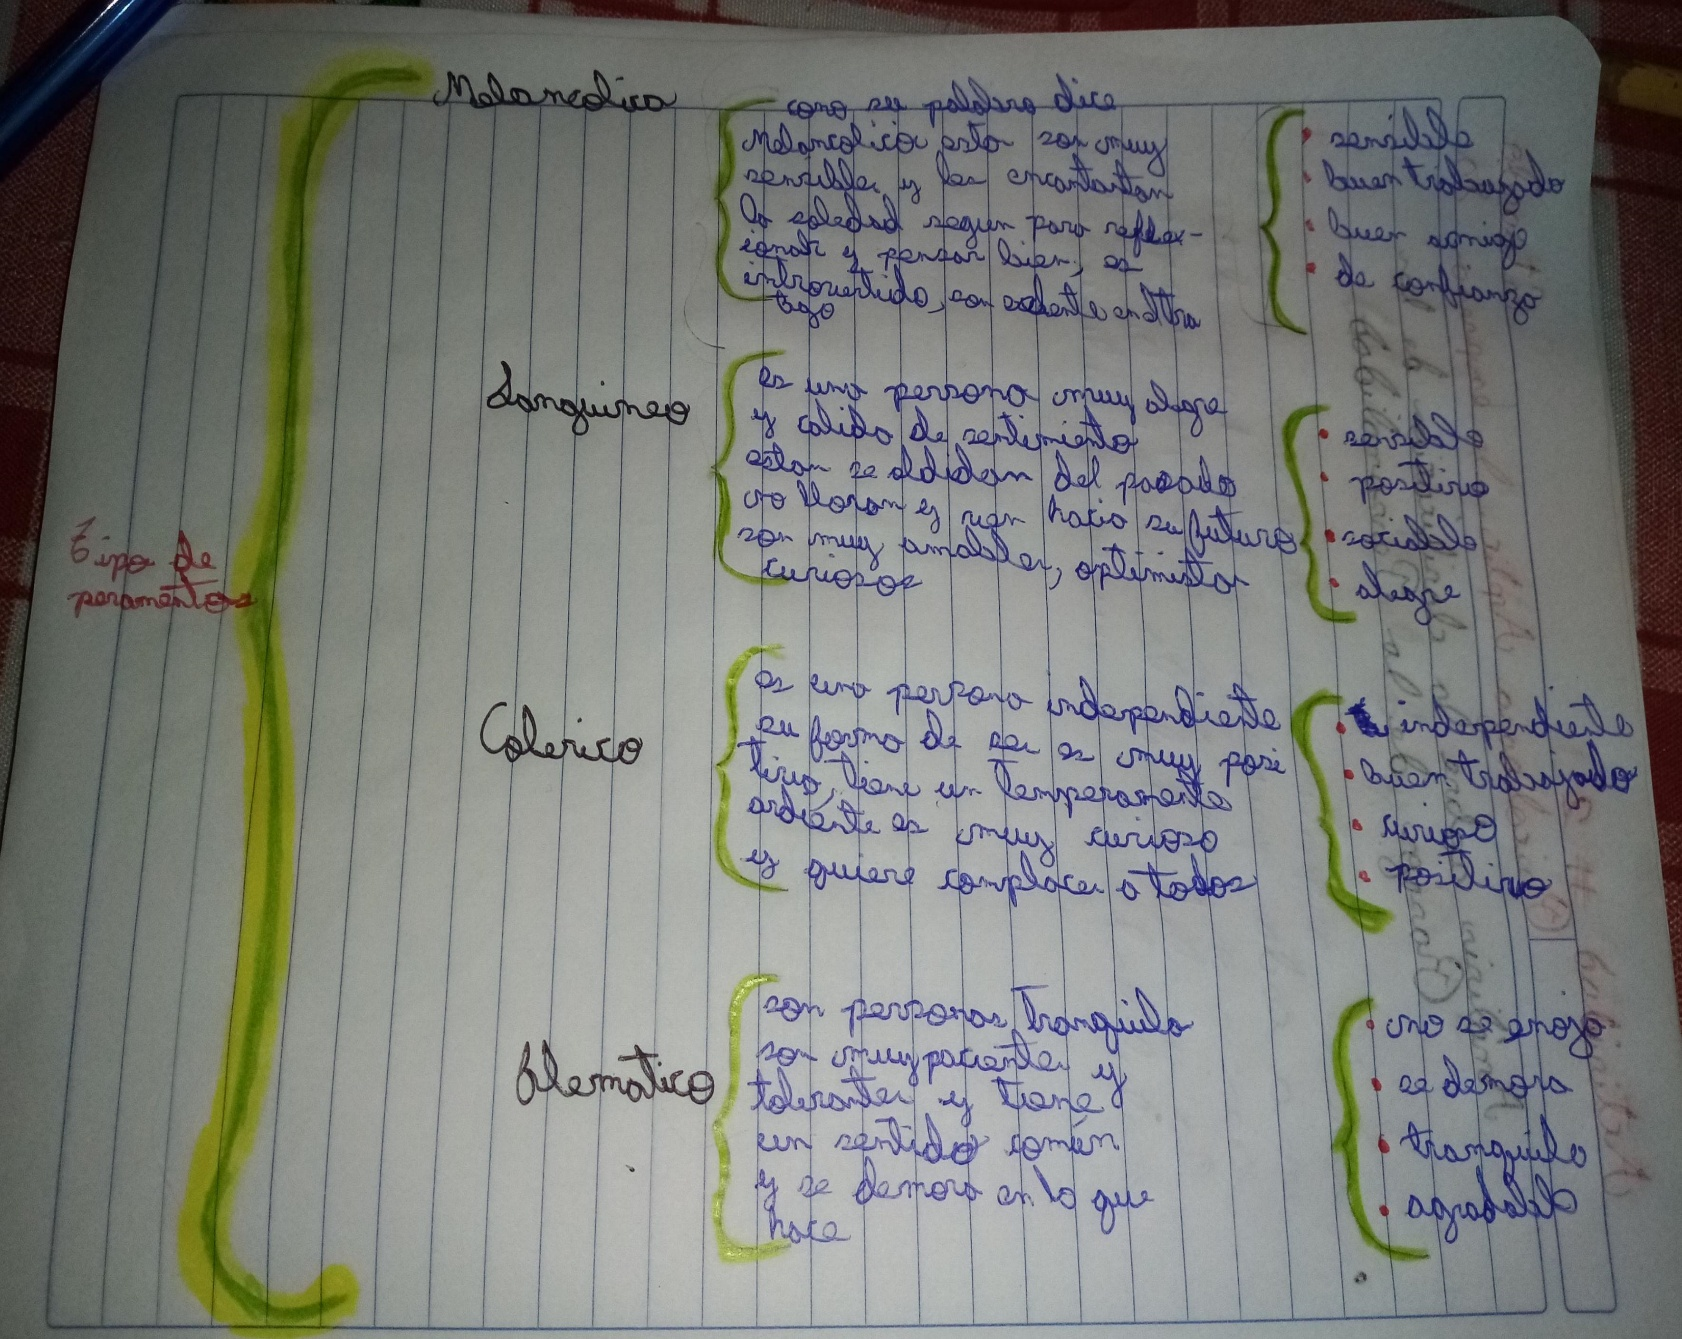 Tipo de
peramentos
Melancolico
como su palabra dice
Melancolico esta son muy
sensibles y les encantantan
la soledad segun para reflex-
ionar y pensar bien, es
introvertido, son en
bajo
sensible
buen trabajado
buen amigo
de confianza
Sanguineo
es una persona muy alegre
y calido de sentimiento
estan se oldidan del pasado
no lloran y rien hacia su futuro
son muy amables, optimista
curiosos
sensible
positivo
sociable
alegre
Colerico
es una persona independiente
su forma de ser es muy posi
tivo, tiene un temperamento
ardiente es muy curioso
y quiere complacer a todos
independiente
buen trabajado
curioso
positivo
flematico
son personas tranquila
son muy paciente y
tolerantes y tiene
un sentido común
y se demora en lo que
hace
no se enoja
se demora
tranquilo
agradable